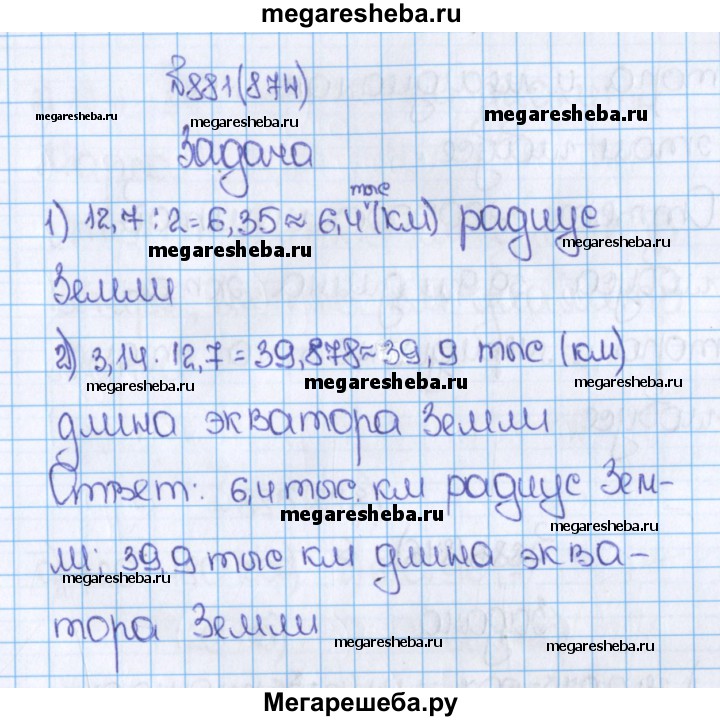 megaresheba.ru
№881(874)
megaresheba.ru
megaresheba.ru
megaresheba.ru
Задача
тыс
1) 12,7 : 2 = 6,35 ≈ 6,4 (км) радиус
megaresheba.ru
megaresheba.ru
Земли
2) 3,14 · 12,7 = 39,878 ≈ 39,9 тыс (км)
megaresheba.ru
megaresheba.ru
megaresheba.ru
длина экватора Земли
Ответ: 6,4 тыс. км радиус Зем-
megaresheba.ru
megaresheba.ru
ли; 39,9 тыс км длина эква-
megaresheba.ru
тора Земли
megaresheba.ru
megaresheba.ru
Мегарешеба.ру